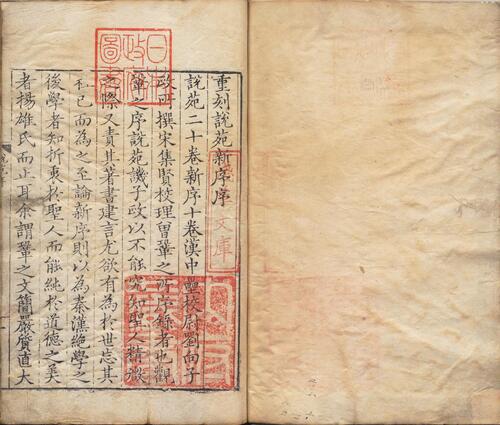 重刻說苑新序序
說苑二十卷新序十卷漢中壘校尉劉向子
政所撰宋集賢校理曾鞏之所序錄者也觀
鞏之序說苑譏子政以不能究知聖人精微
之際又責其著書建言尤欲有為於世忘其
不已而為之至論新序則以為秦漢絕學之
後學者知折衷於聖人而能純於道德之美
者揚雄氏而止耳余謂鞏之文簡嚴質直大
日本
政府
圖書
文庫